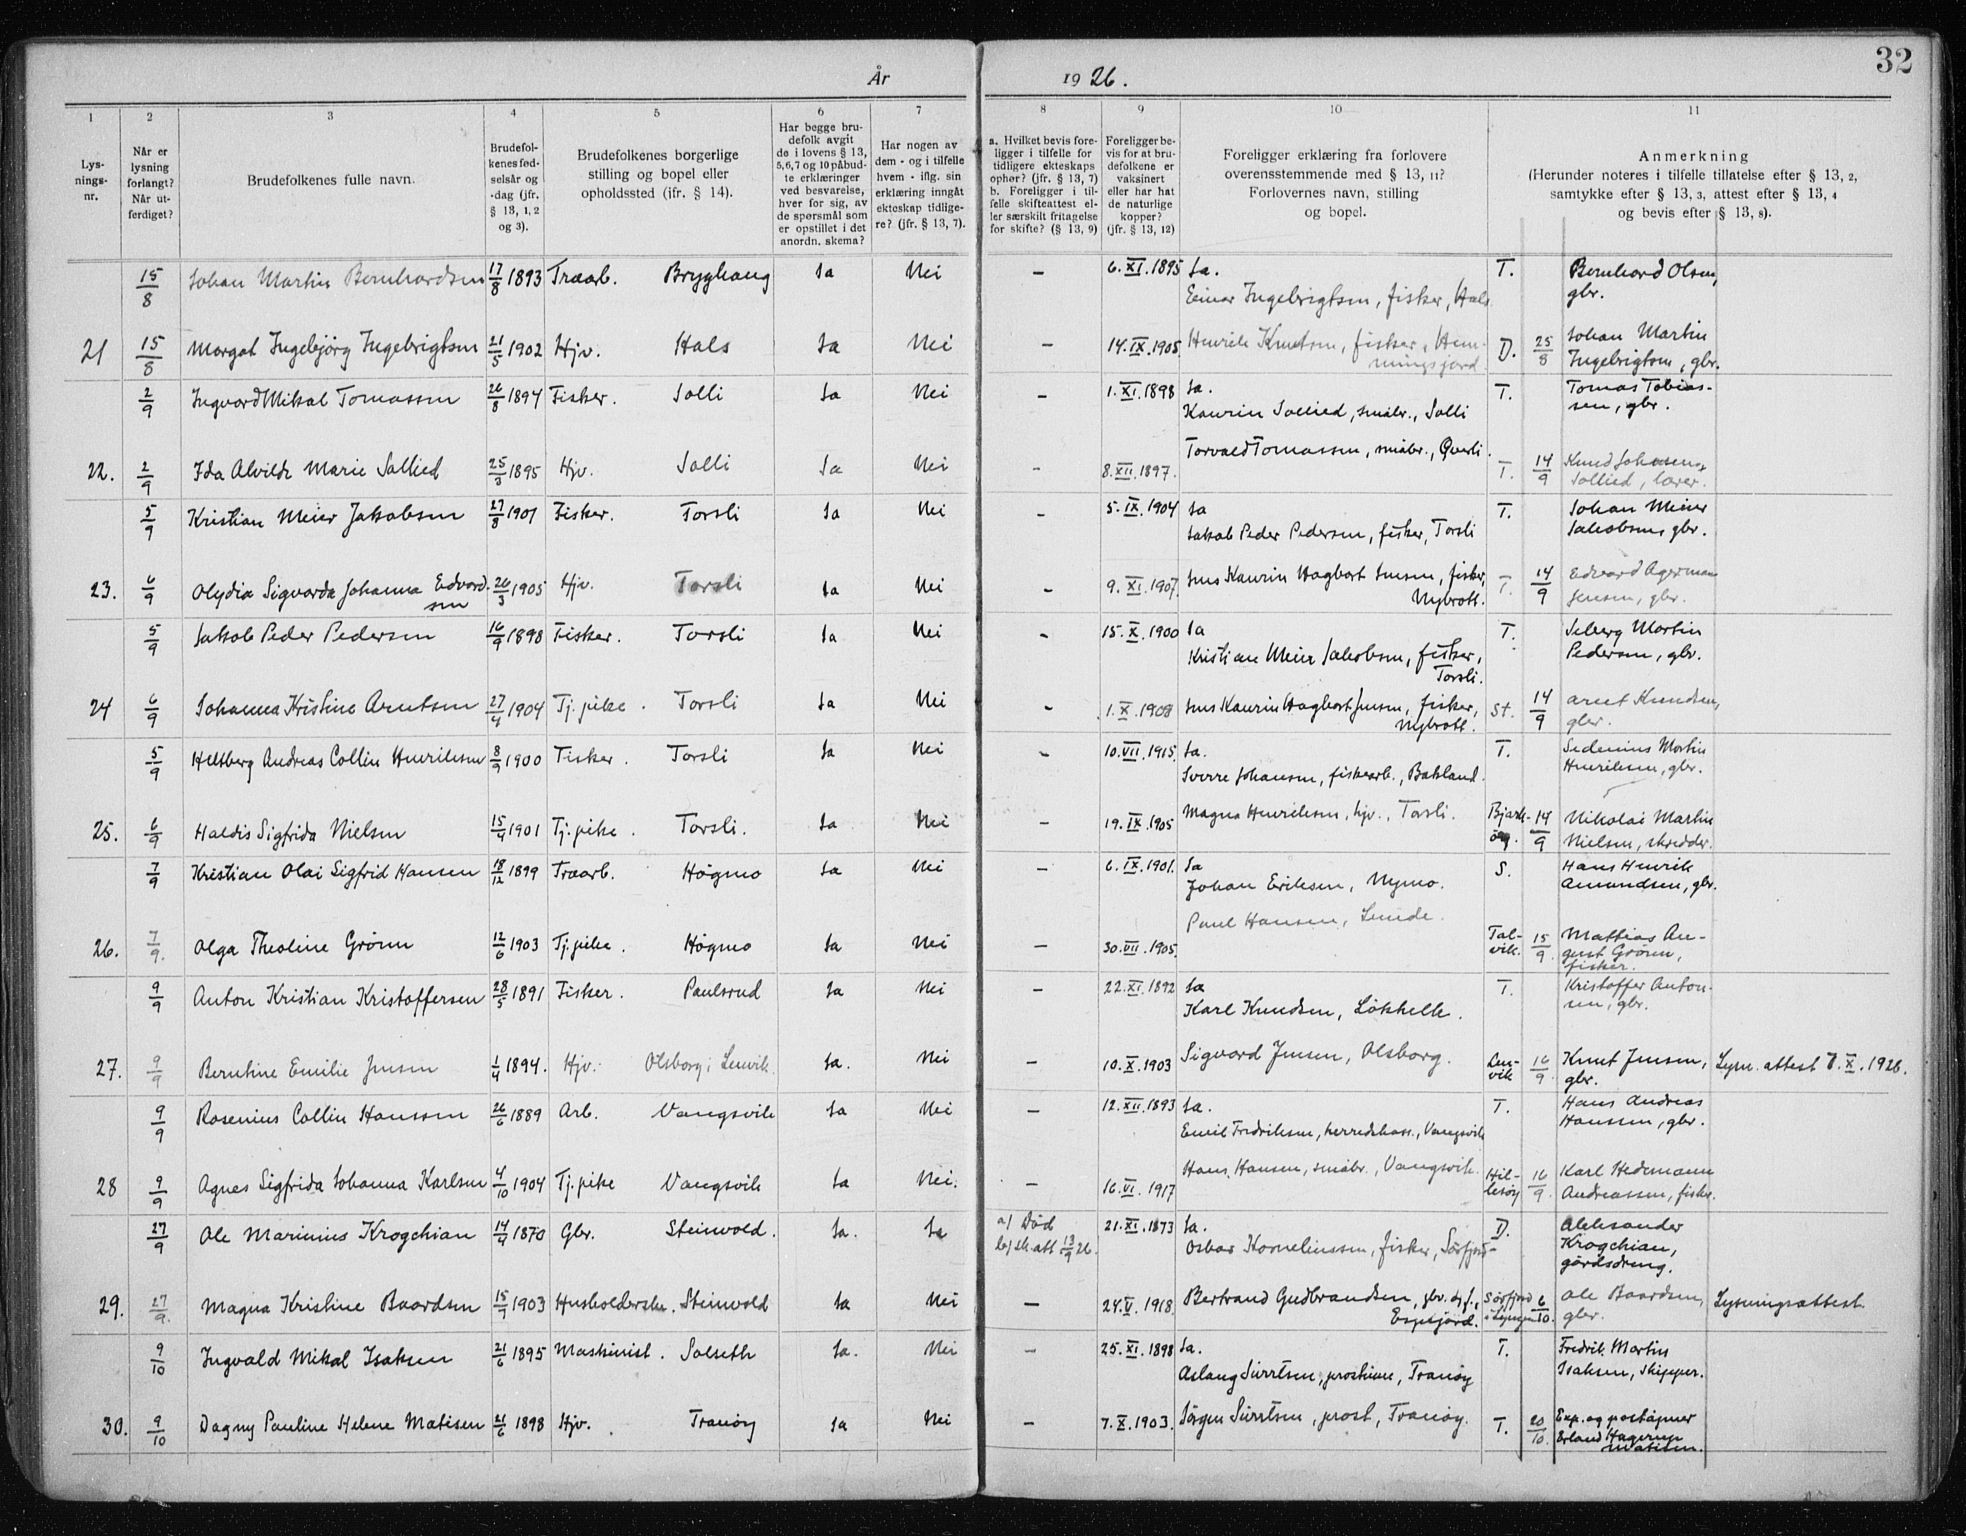 32
År 1926.
1 2 3 4 5 6 7 8 9 10 11
Lysningsnr.
Når er lysning forlangt? Når utferdiget?
Brudefolkenes fulle navn.
Brudefolkenes fødselsår og -dag (jfr. § 13, 1, 2 og 3).
Brudefolkenes borgerlige stilling og bopel eller opholdssted (jfr. § 14).
Har begge brudefolk avgit de i lovens § 13, 5, 6, 7 og 10 påbudte erklæringer ved besvarelse, hver for sig, av de spørsmål som er opstillet i det anordn. skema?
Har nogen av dem - og i tilfelle hvem - iflg. sin erklæring inngått ekteskap tidligere? (jfr. § 13, 7).
a. Hvilket bevis foreligger i tilfelle for tidligere ekteskaps ophør? (jfr. § 13, 7) b. Foreligger i tilfelle skifteattest eller særskilt fritagelse for skifte? (§ 13, 9)
Foreligger bevis for at brudefolkene er vaksinert eller har hat de naturlige kopper? (jfr. § 13, 12)
Foreligger erklæring fra forlovere overensstemmende med § 13, 11? Forlovernes navn, stilling og bopel.
Anmerkning (Herunder noteres i tilfelle tillatelse efter § 13, 2, samtykke efter § 13, 3, attest efter § 13, 4 og bevis efter § 13, 8).
15/8 Johan Martin Bernhardsen 17/8 1893 Træarb. Brygghaug Ja Nei — 6.XI.1895 Ja. T. Bernhard Olsen,
Einar Ingebrigtsen, fisker, Hals gbr.
21 15/8 Margot Ingebjørg Ingebrigtsen 21/5 1902 Hjv. Hals Ja Nei — 14.IX.1905 Henrik Knutsen, fisker, Hemmingsjord D. 25/8 Johan Martin
Ingebrigtsen, gbr.
2/9 Ingvard Mikal Tomassen 26/8 1897 Fisker. Solli Ja Nei — 1.XI.1898 Ja. T. Tomas Tobiassen, gbr.
Kaurin Sollied, småbr., Solli
Torvald Tomassen, småbr.,
22. 2/9 Ida Alvilde Marie Sollied 25/3 1895 Hjv. Solli Ja Nei — 8.XII.1897. T. 14/9 Knud Johansen
Sollied, lærer.
5/9 Kristian Meier Jakobsen 27/8 1901 Fisker. Torsli Ja Nei — 5.IX.1904 Ja T. Johan Meier
Jakob Peder Pedersen, fisker, Torsli Jakobsen, gbr.
23. 6/9 Olydia Sigvarda Johanna Edvardsen 26/3 1905 Hjv. Torsli Ja Nei — 9.XI.1907 Jens Kaurin Hagbart Jensen, fisker, Nybrott. T. 14/9 Edvard Agerman
Jensen, gbr.
5/9 Jakob Peder Pedersen 16/9 1898 Fisker. Torsli Ja Nei — 15.X.1900 Ja T. Seberg Martin
Kristian Meier Jakobsen, fisker, Torsli. Pedersen, gbr.
24 6/9 Johanna Kristine Arntsen 27/4 1904 Tj.pike. Torsli Ja Nei — 1.X.1908 Jens Kaurin Hagbart Jensen, fisker, Nybrott. St. 14/9 Arnt Knudsen,
gbr.
5/9 Heltberg Andreas Collin Henriksen 8/9 1900 Fisker. Torsli Ja Nei — 10.VII.1915 Ja. T. Sedenius Martin
Sverre Johansen, fiskearb., Bakland. Henriksen, gbr.
25. 6/9 Haldis Sigfrida Nielsen 15/4 1901 Tj.pike. Torsli. Ja Nei — 19.IX.1905 Magna Henriksen, hjv., Torsli. Bjarkøy. 14/9 Nikolai Martin
Nielsen, skredder.
7/9 Kristian Olai Sigfrid Hansen 18/12 1899 Træarb. Høgmo Ja Nei — 6.IX.1901. Ja S. Hans Henrik
Johan Eriksen, Nymo. Amundsen, gbr.
Paul Hansen, Lunde.
26. 7/9. Olga Theoline Grønn 12/6 1903 Tj.pike. Høgmo Ja Nei — 30.VII.1905. Talvik. 15/9. Mattias August Grønn,
fisker.
9/9 Anton Kristian Kristoffersen 28/5 1891 Fisker. Paulsrud Ja Nei — 22.XI.1892 Ja T. Kristoffer Antonsen, gbr.
Karl Knudsen, Løkhelle.
27. 9/9 Berntine Emilie Jensen 1/4 1894. Hjv. Olsborg i Lenvik. Ja. Nei — 10.X.1903 Sigvard Jensen, Olsborg. Lenvik 16/9. Knut Jensen, Lysn.attest 7.X.1926.
gbr.
9/9 Rosenius Collin Hanssen 26/6 1889 Arb. Vangsvik Ja Nei — 12.XII.1893 Ja. T. Hans Andreas
Emil Fredriksen, herredskass., Vangsvik Hanssen, gbr.
28 9/9 Agnes Sigfrida Johanna Karlsen 4/10 1904 Tj.pike Vangsvik Ja Nei. — 16.VI.1917 Hans Hansen, småbr., Vangsvik. Hillesøy 16/9. Karl Hedemann
Andreassen, fisker.
27/9 Ole Marinius Krogchian 14/4 1870 Gbr. Steinvold. Ja. Ja a) Død b) sk.att 13/9 26. 21.XI.1873 Ja. D. Aleksander
Oskar Kornelinssen, fisker, Sørfjord Krogchian,
gårdsdreng.
29. 27/9. Magna Kristine Baardsen 15/9 1903 Husholderske. Steinvold Ja Nei — 24.V.1918 Bertrand Gudbrandsen, gbr. og f., Sørfjord i 6/10. Ole Baardsen, Lysningsattest
gbr.
9/10 Ingvald Mikal Isaksen 21/6 1895 Maskinist. Solseth Ja. Nei — 25.XI.1898 Ja. T. Fredrik Martin
Aslaug Sivertsen, prostinne, Tranøy Isaksen, Skipper.
30. 9/10 Dagny Pauline Helene Matisen 21/6 1898 Hjv. Tranøy Ja Nei — 7.X.1903. Jørgen Sivertsen, prost, Tranøy. T. 20/10. Exp. og poståpner
Erland Hagerup
Matisen.